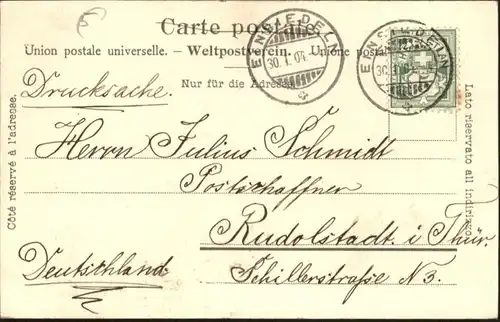 Carte postale
Union postale universelle. – Weltpostverein. – Unione postale
Nur für die Adresse.
EINSIEDELN
30.I.04.
EINSIEDELN
30.I.04.
Drucksache.
Herrn Julius Schmidt
Postschaffner
Rudolstadt i/Thür.
Deutschland
Schillerstraße N 3.
Côté réservé à l'adresse.
Lato riservato all indirizzo.